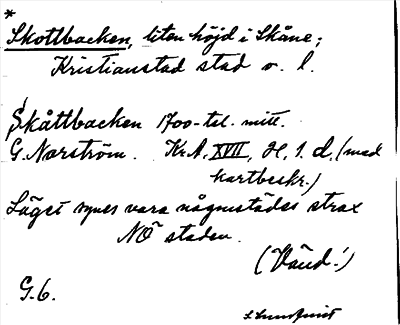 *
Skottbacken, liten höjd i Skåne;
Kristianstad stad o. l.
Skåttbacken 1700-tal. mitt.
G. Norström. KrA, XVII, H, 1. d, (med
kartbeskr.)
Läget synes vara någonstädes strax
NÖ staden.
(Vänd!)
G. 6.